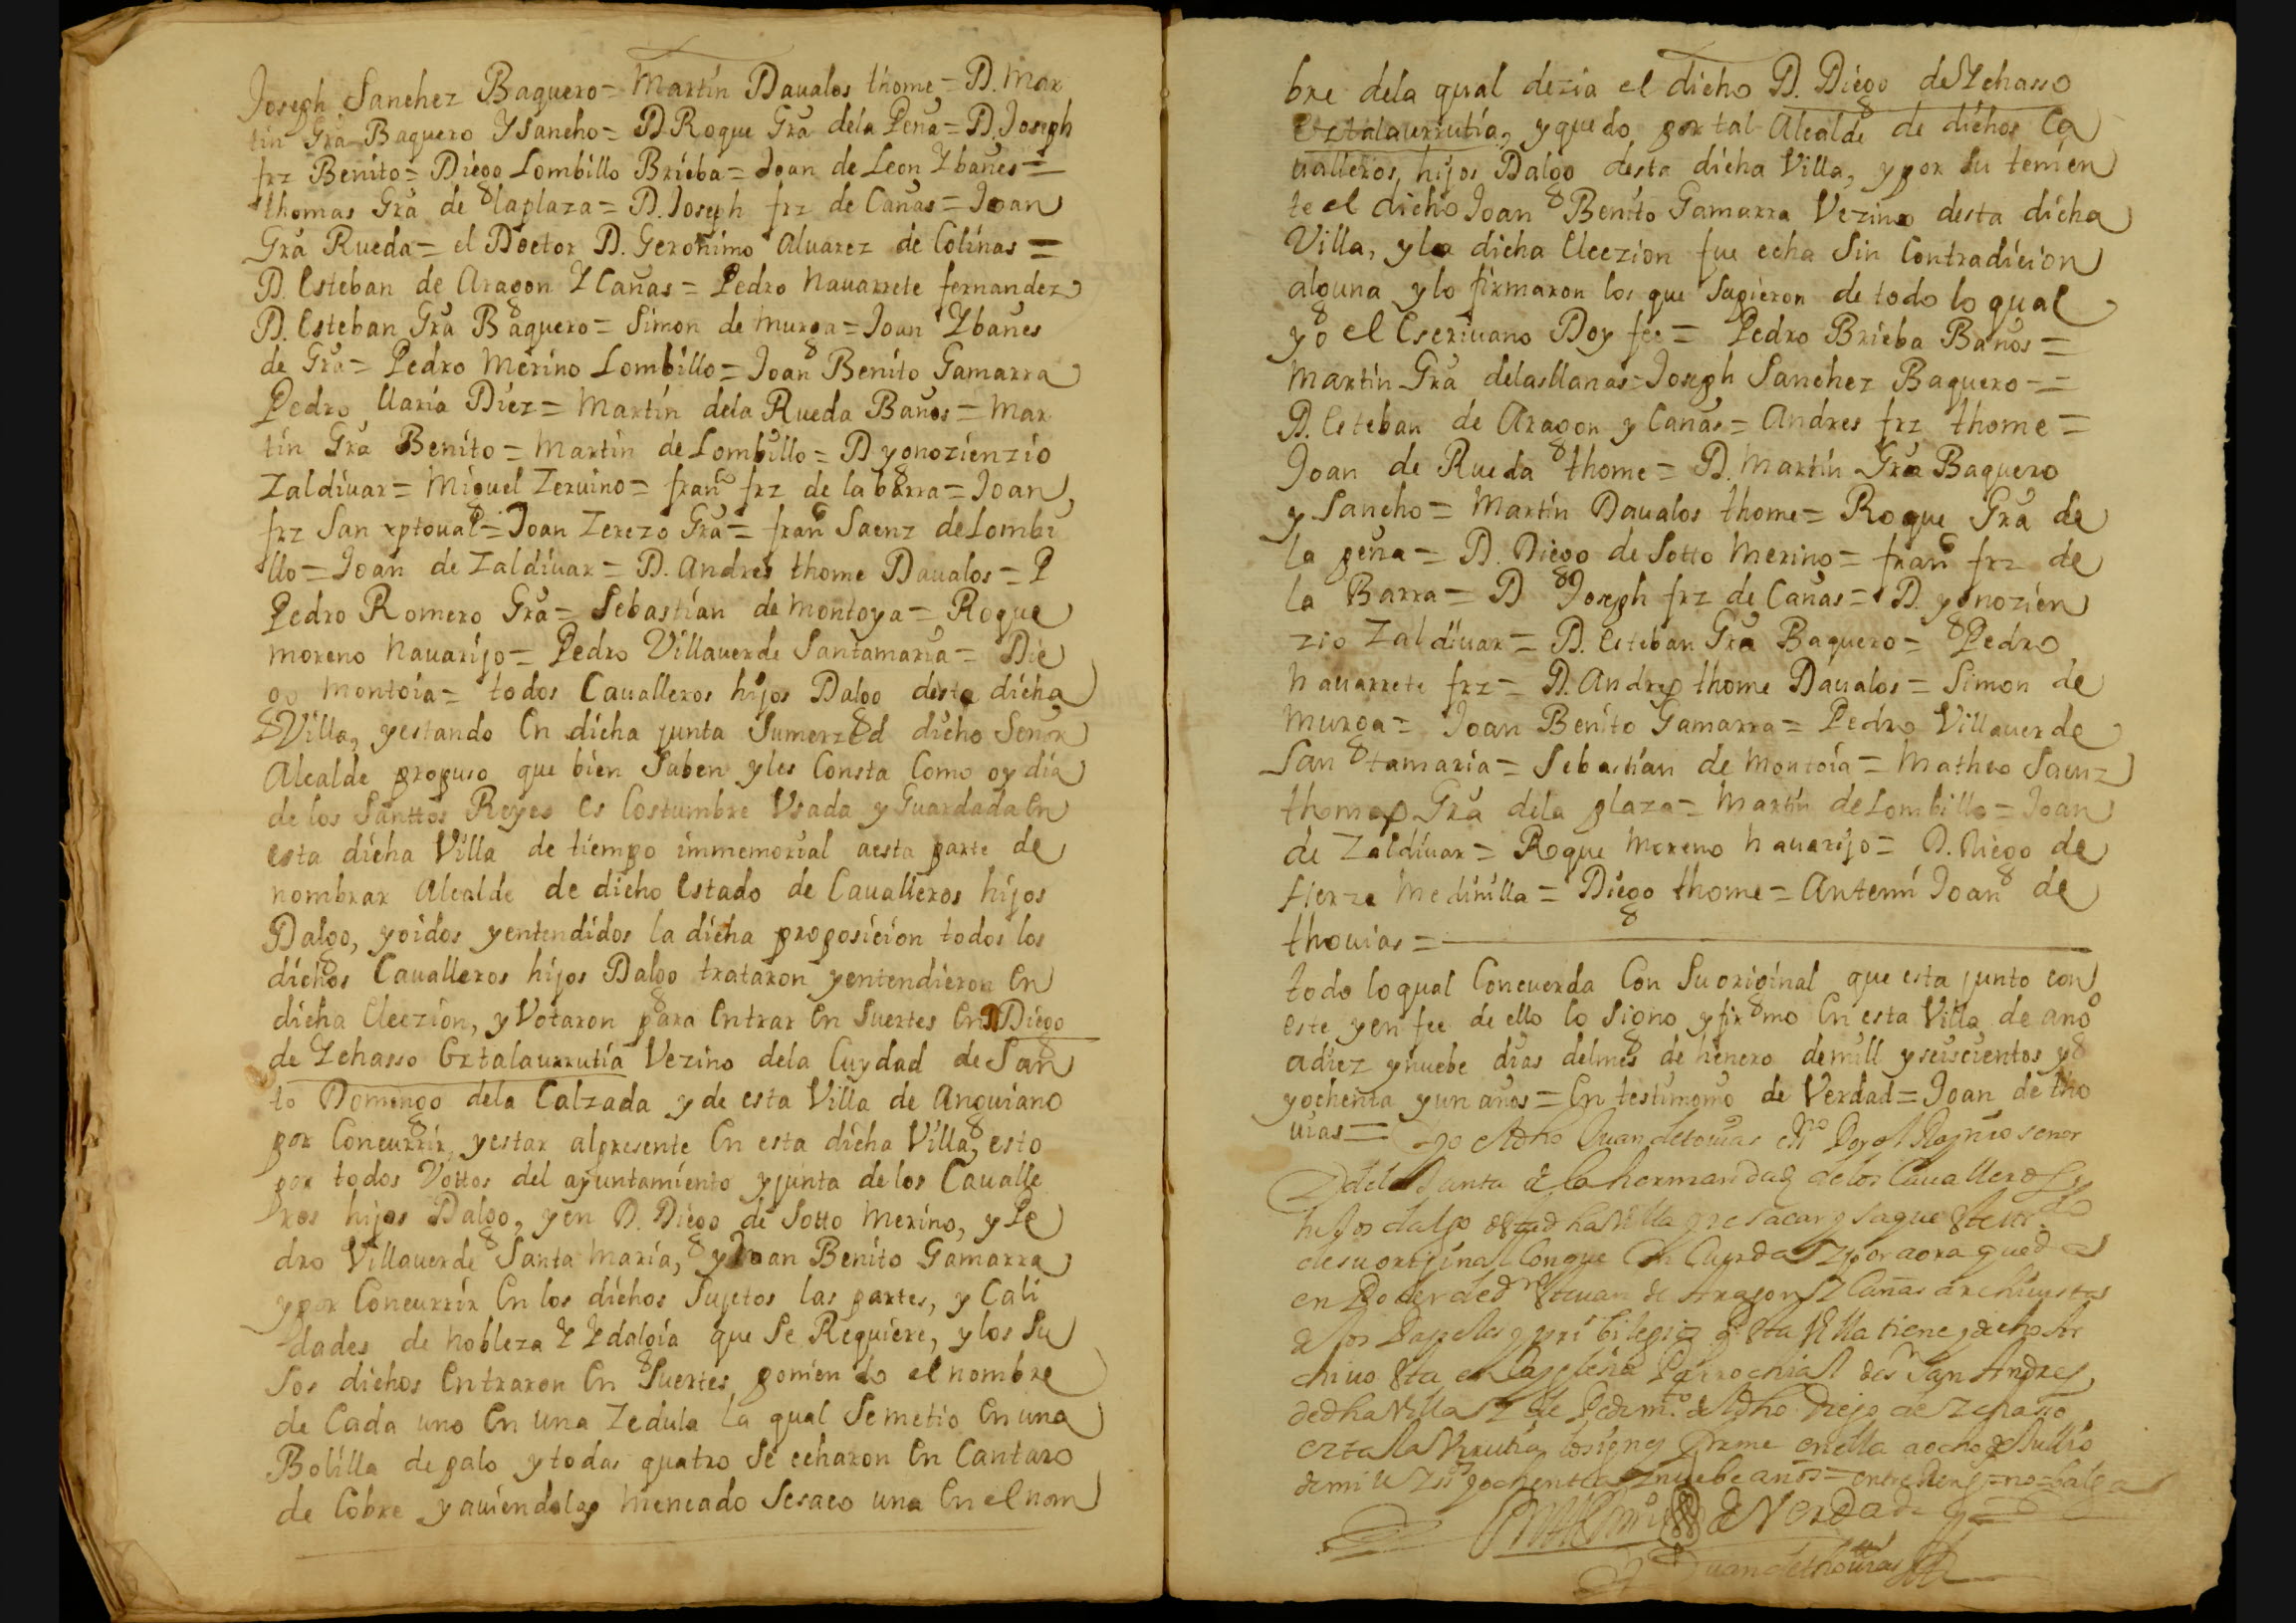 Joseph Sanchez Baquero = Martin Daualos thome = D. Mar
tin Gra Baquero Y Sancho = D Roque Gra dela Peña = D. Joseph
frz Benito = Diego Lombillo Brieba = Joan de Leon Ybañes =
thomas Gra de la plaza = D. Joseph frz de Cañas = Joan
Gra Rueda = el Doctor D. Geronimo Aluarez de Colinas =
D. Esteban de Aragon Y Cañas = Pedro Nauarrete fernandez
D. Esteban Gra Baquero = Simon de Murga = Joan Ybañes
de Gra = Pedro Merino Lombillo = Joan Benito Gamarra
Pedro llaria Diez = Martin dela Rueda Baños = Mar
tin Gra Benito = Martin de Lombillo = D ynozienzio
Zaldiuar = Miguel Zeruino = franco frz de la barra = Joan
frz San xptoual = Joan Zerezo Gra = franco Saenz de Lombi
llo = Joan de Zaldiuar = D. Andres thome Daualos = P
Pedro Romero Gra = Sebastian de Montoya = Roque
Moreno Nauarijo = Pedro Villauerde Santamaria = Die
go Montoia = todos Caualleros hijos Dalgo desta dicha
Villa, y estando En dicha junta Sumerzed dicho Señor
Alcalde propuso que bien Saben y les Consta Como oy dia
de los Santtos Reyes Es Costumbre Vsada y Guardada En
esta dicha Villa de tiempo immemorial aesta parte de
nombrar Alcalde de dicho Estado de Caualleros hijos
Dalgo, y oidos y entendidos la dicha proposicion todos los
dichos Caualleros hijos Dalgo trataron y entendieron En
dicha Eleczion, y Votaron para Entrar En Suertes En D Diego
de Zehasso Eztalaurrutia Vezino dela Cuydad de San
to Domingo dela Calzada y de esta Villa de Anguiano
por Concurrir, y estar alpresente En esta dicha Villa, esto
por todos Vottos del ayuntamiento y junta de los Caualle
ros hijos Dalgo, y en D. Diego de Sotto Merino, y Pe
dro Villauerde Santa Maria, y Joan Benito Gamarra
y por Concurrir En los dichos Sujetos las partes, y Cali
dades de Nobleza Y Ydalgia que Se Requiere, y los Su
sos dichos Entraron En Suertes poniendo el nombre
de Cada uno En una Zedula la qual Se metio En una
Bolilla de palo y todas quatro Se echaron En Cantaro
de Cobre y auiendolas meneado Sesaco una En el nom
bre dela qual dezia el dicho D. Diego de Zehasso
Eztalaurrutia, y quedo por tal Alcalde de dichos Ca
ualleros, hijos Dalgo desta dicha Villa, y por Su tenien
te el dicho Joan Benito Gamarra Vezino desta dicha
Villa, y la dicha Eleczion fue echa Sin Contradicion
alguna y lo firmaron los que Supieron de todo lo qual
yo el Escriuano Doy fee = Pedro Brieba Baños =
Martin Gra delasllanas = Joseph Sanchez Baquero =
D. Esteban de Aragon y Cañas = Andres frz thome =
Joan de Rueda thome = D. Martin Gra Baquero
y Sancho = Martin Daualos thome = Roque Gra de
la peña = D. Diego de Sotto Merino = franco frz de
la Barra = D Joseph frz de Cañas = D. ynozien
zio Zaldiuar = D. Esteban Gra Baquero = Pedro
Nauarrete frz = D. Andres thome Daualos = Simon de
Murga = Joan Benito Gamarra = Pedro Villauerde
Santamaria = Sebastian de Montoia = Matheo Saenz
thomas Gra dela plaza = Martin de Lombillo = Joan
de Zaldiuar = Roque Moreno Nauarijo = D. Diego de
Herze Medinilla = Diego thome = Antemi Joan de
thouias =
todo loqual Concuerda Con Su original que esta junto con
este y en fee de ello lo Signo y firmo En esta Villa de ano
adiez ynuebe dias delmes de henero demill y seiscientos y
yochenta yun años = En testimonio de Verdad = Joan de tho
uias = Yo el dho Juan de touias essno Por el Rey nro señor
y dela Junta de la hermandad de los Caualleros
hijos dalgo desta dha Villa yze sacar y saque este tr
de su original Con que Con Cuerda Y por aora queda
en Poder de dn Esteuan de Aragon Y Cañas archiuista
de los Papeles y pribilegios q esta Villa tiene, dicho Ar
chiuo esta en la yglesia Parrochial de sr San Andres
de dha Villa Y de Pedimto del dho Diego de Zehasso
eztalaVrrutia lo signe y firme en ella a ocho de Jullio
de mill Y ssos y ochenta Y nuebe años = entre Reng = no = balga
En testimonio de Verdad
Juan de thouias